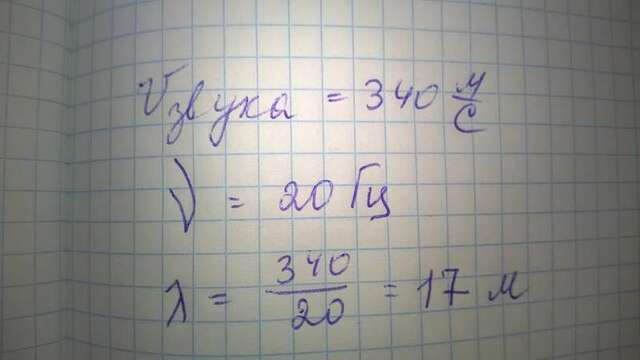 Vзвука = 340 м/с
ν = 20 Гц
λ = 340/20 = 17 м